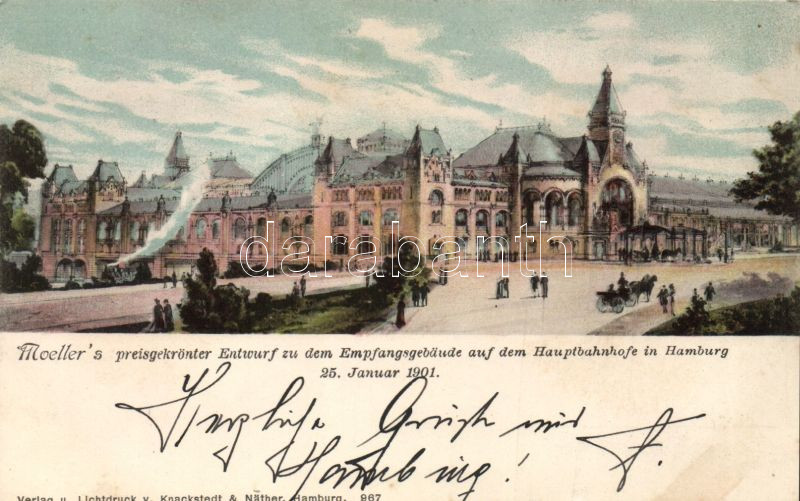 darabanth
Moeller's preisgekrönter Entwurf zu dem Empfangsgebäude auf dem Hauptbahnhofe in Hamburg
25. Januar 1901.
Herzliche Grüße
Hamburg!
Verlag u. Lichtdruck v. Knackstedt & Näther, Hamburg. 967